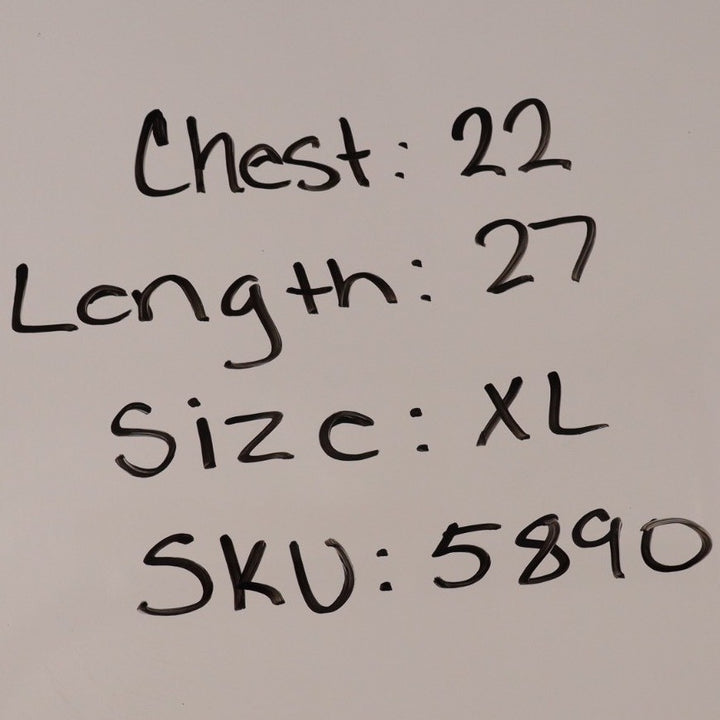 Chest: 22
Length: 27
Size: XL
SKU: 5890